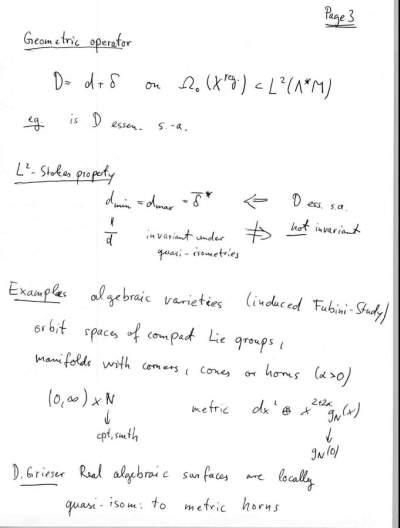 Page 3
Geometric operator
D = d + δ on Ω₀(X^reg.) ⊂ L²(Λ*M)
eg is D essen. s.-a.
L²-Stokes property
d_min = d_max = δ̄* ⇐ D ess. s.a.
d̄ invariant under ⇏ not invariant
quasi-isometries
Examples algebraic varieties (induced Fubini-Study)
orbit spaces of compact Lie groups,
manifolds with corners, cones or horns (α>0)
(0,∞) × N metric dx² ⊕ x^{2+2α} g_N(x)
↓ ↓
cpt, smth g_N(0)
D. Grieser Real algebraic surfaces are locally
quasi-isom. to metric horns